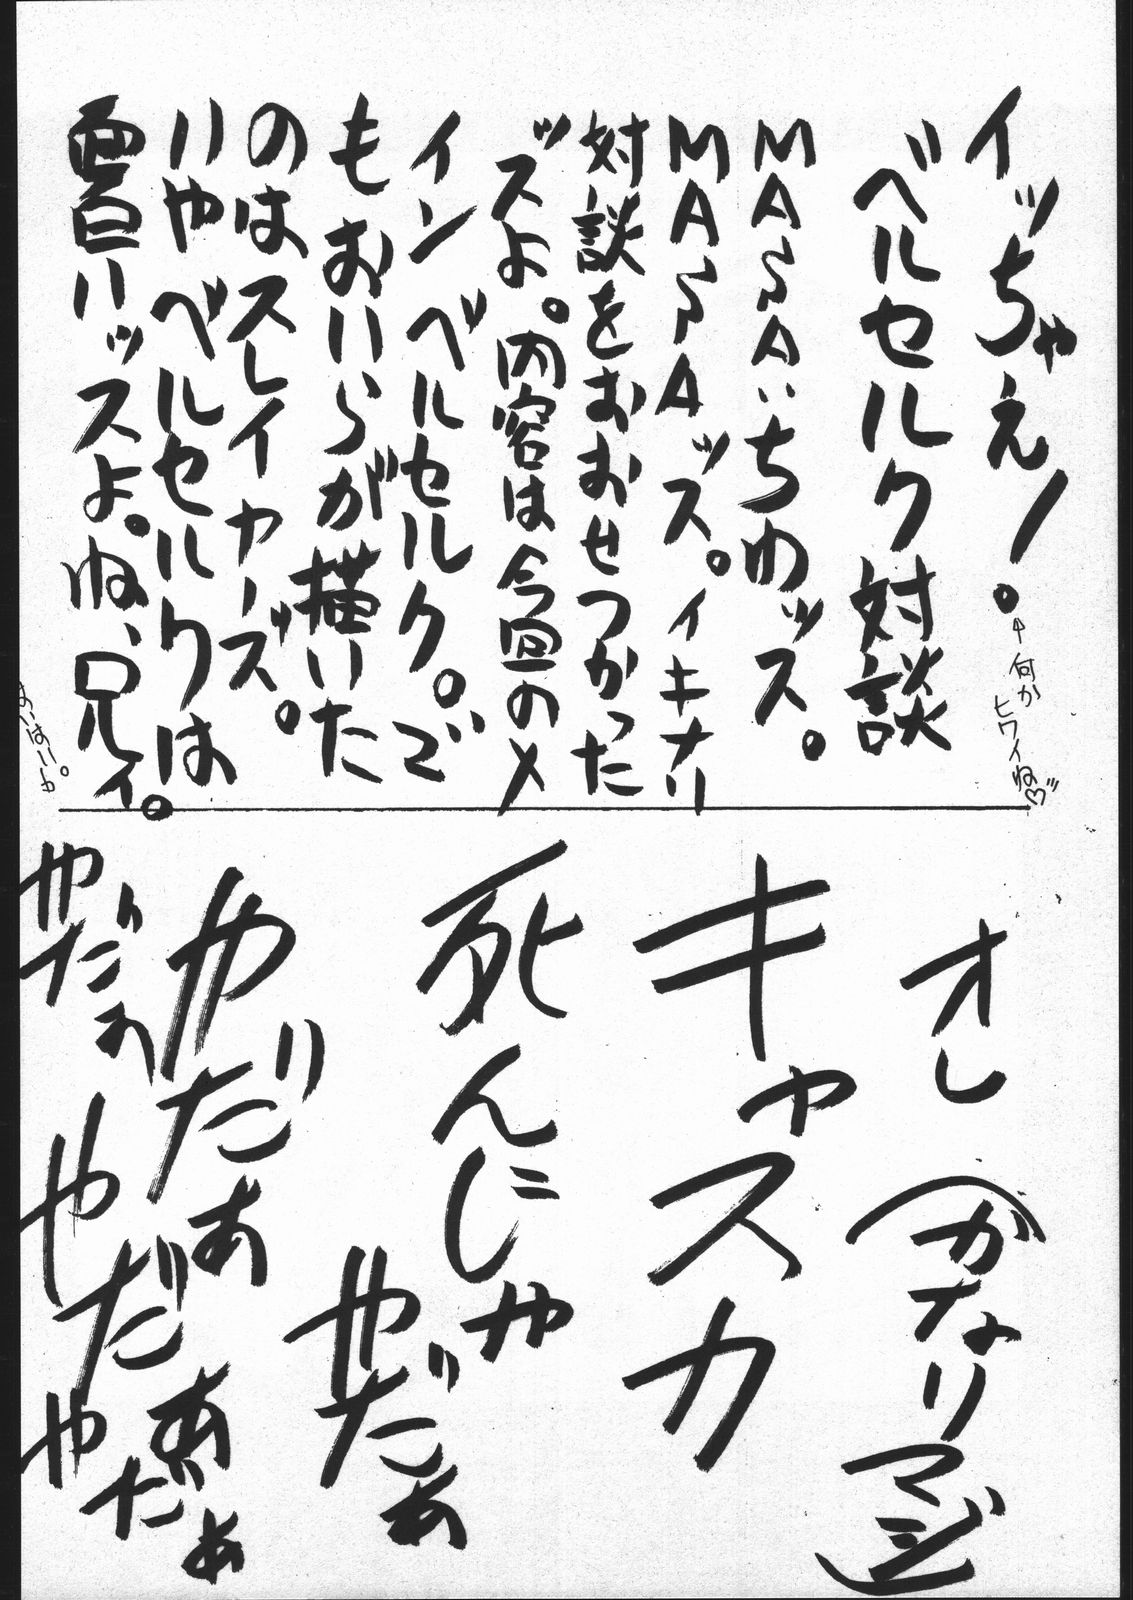 イッちゃえ!。
↑何か
ヒワイね♡
ベルセルク対談
MASAいちわッス。
MASAッス。イキナリ
対談をおおせつかった
ッスよ。内容は今回のメ
インベルセルク。で
もおいらが描いた
のはスレイヤーズ。
いやベルセルクは。
買いッスよ。ね、兄ィ。
オレ
(かなりマジ)
キャスカ
死んじゃ
やだぁ
やだぁ
やだぁ
やだぁ
やだぁ